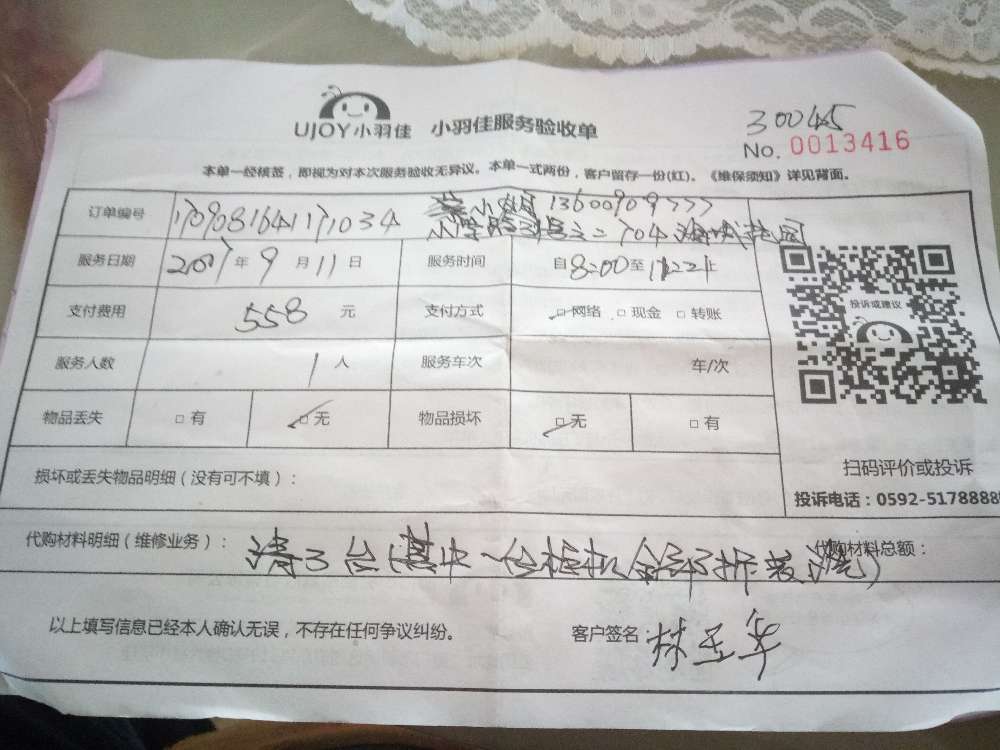 UJOY小羽佳 小羽佳服务验收单
30045
No. 0013416
本单一经核签，即视为对本次服务验收无异议。本单一式两份，客户留存一份(红)。《维保须知》详见背面。
订单编号 小姐 13600909777
704
服务日期 2017年9月11日 服务时间 自8:00至
支付费用 558元 支付方式 □网络 □现金 □转账
服务人数 1人 服务车次 车/次
物品丢失 □有 □无 物品损坏 □无 □有
投诉或建议
损坏或丢失物品明细（没有可不填）：
扫码评价或投诉
投诉电话：0592-5178888
代购材料明细（维修业务）： 代购材料总额：
以上填写信息已经本人确认无误，不存在任何争议纠纷。 客户签名